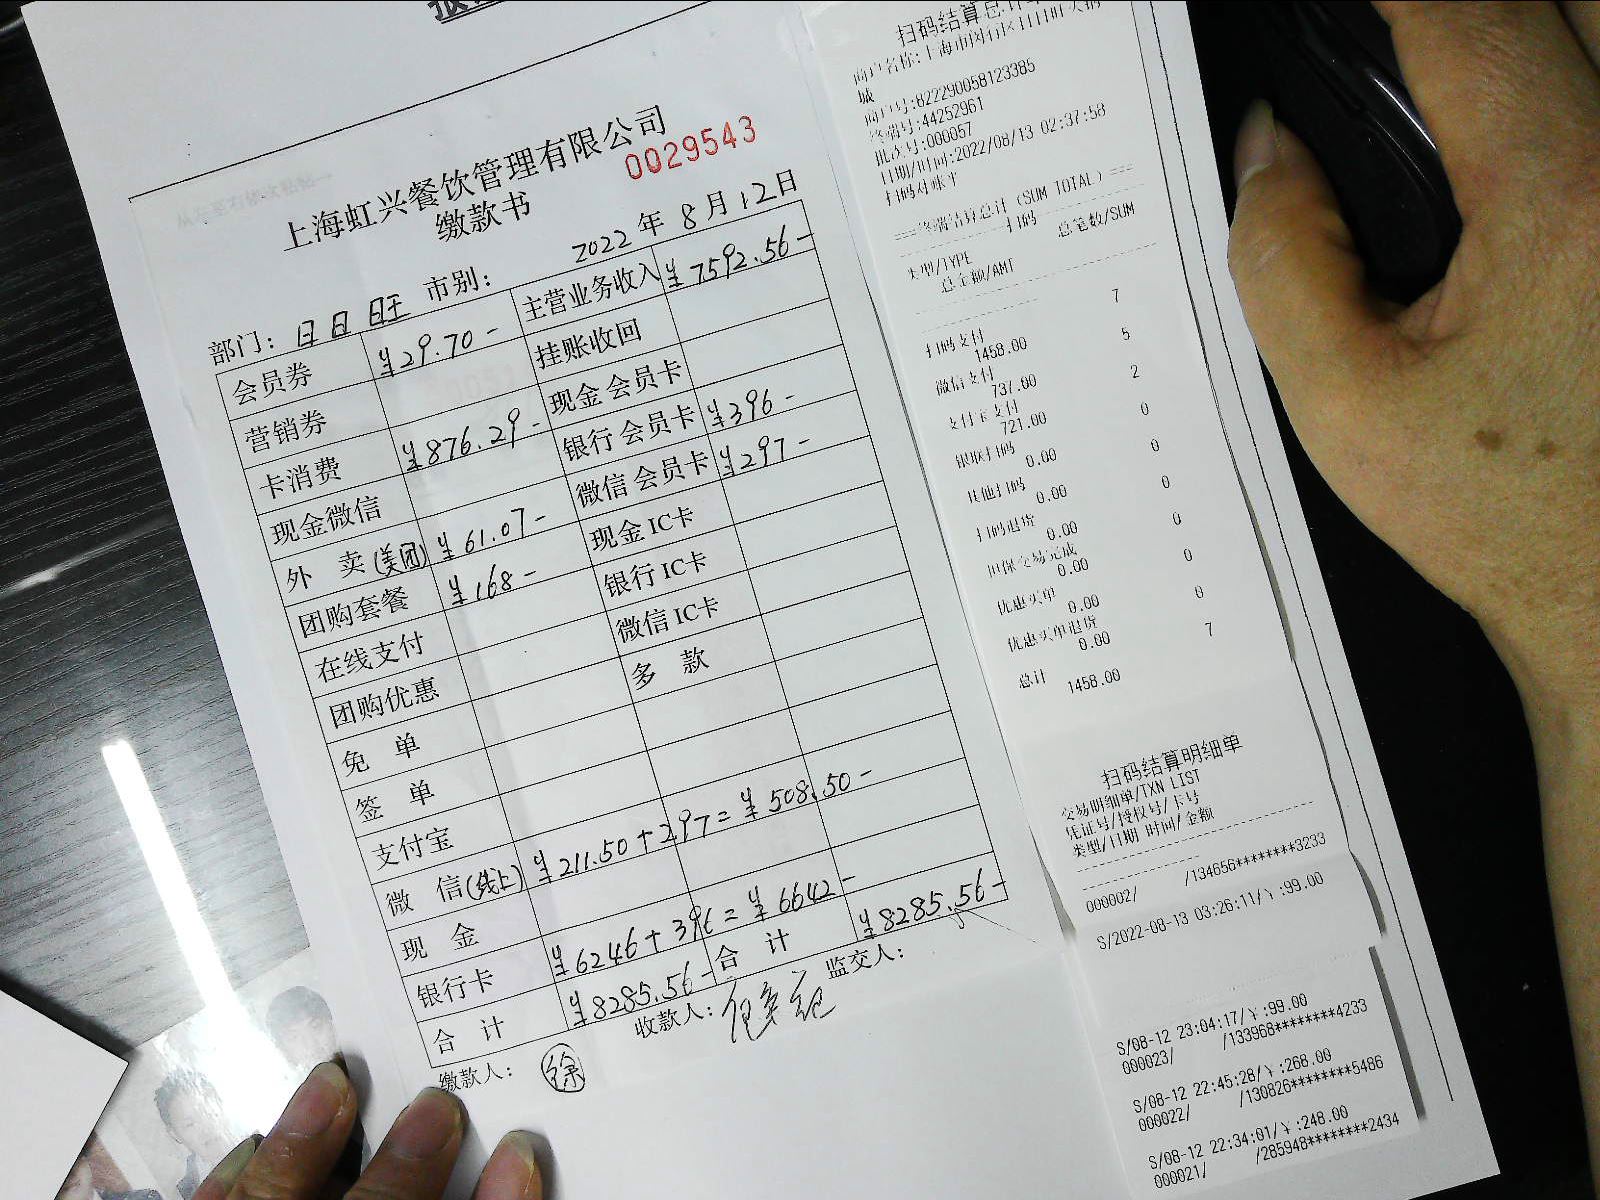 上海虹兴餐饮管理有限公司
缴款书
0029543
2022 年 8 月 12 日
部门: 日日旺 市别:
会员券 ¥29.70- 主营业务收入 ¥7592.56-
营销券 挂账收回
卡消费 ¥876.29- 现金会员卡
现金微信 银行会员卡 ¥396-
外 卖(美团) ¥61.07- 微信会员卡 ¥297-
团购套餐 ¥168- 现金IC卡
在线支付 银行IC卡
团购优惠 微信IC卡
免 单 多 款
签 单
支付宝
微 信(线上) ¥211.50+297=¥508.50-
现 金
银行卡 ¥6246+396=¥6642-
合 计 ¥8285.56- 合 计 ¥8285.56-
缴款人: 徐 收款人: 监交人:
扫码结算总计单
商户名称:上海市闵行区日日旺火锅
城
商户号:822290058123385
终端号:44252961
批次号:000057
日期/时间:2022/08/13 02:37:58
扫码对账平
===终端结算总计(SUM TOTAL)===
扫码
类型/TYPE 总笔数/SUM
总金额/AMT
扫码支付 7
1458.00
微信支付 5
737.00
支付宝支付 2
721.00
银联扫码 0
0.00
其他扫码 0
0.00
扫码退货 0
0.00
担保交易完成 0
0.00
优惠买单 0
0.00
优惠买单退货 0
0.00
总计 7
1458.00
扫码结算明细单
交易明细单/TXN LIST
凭证号/授权号/卡号
类型/日期 时间/金额
000002/ /134656********3233
S/2022-08-13 03:26:11/¥:99.00
S/08-12 23:04:17/¥:99.00
000023/ /133968********4233
S/08-12 22:45:28/¥:268.00
000022/ /130826********5486
S/08-12 22:34:01/¥:248.00
000021/ /285948********2434